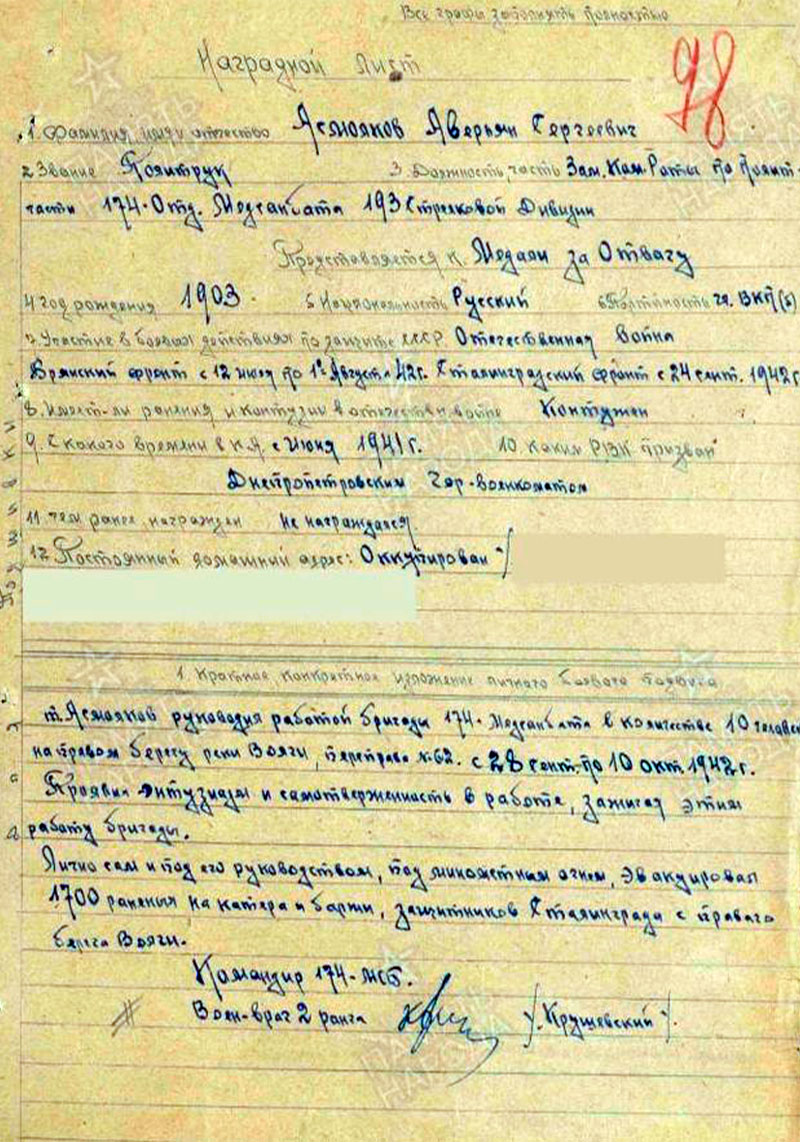 Все графы заполнять полностью
98
Наградной лист
1. Фамилия, имя, отчество Асмолков Аверьян Сергеевич
2 Звание Политрук 3. Должность, часть Зам. Ком. Роты по полит-
части 174-Отд. Медсанбата 193 Стрелковой Дивизии
Представляется к Медали за Отвагу
4 год рождения 1903. 5 Национальность Русский 6 Партийность чл. ВКП(б)
7 Участие в боевых действиях по защите СССР. Отечественная Война
Брянский фронт с 12 июля по 1е Августа 42г. Сталинградский фронт с 24 сент. 1942г.
8. Имеет-ли ранения и контузии в отечествен войне Контужен
9. С какого времени в К.А. с Июня 1941г. 10 каким РВК призван
Днепропетровским Гор-военкоматом
11. Чем ранее награжден Не награждался
12 Постоянный домашний адрес: Оккупирован
1. Краткое, конкретное изложение личного боевого подвига
т. Асмолков руководил работой бригады 174-Медсанбата в количестве 10 человек
на правом берегу реки Волги, переправа №62. с 28 сент. по 10 окт. 1942г.
Проявил энтузиазм и самотверженность в работе, зажигая этим
работу бригады.
Лично сам и под его руководством, под минометным огнем, эвакуировал
1700 раненых на катера и баржи, защитников Сталинграда с правого
берега Волги.
Командир 174-МСБ.
Воен-врач 2 ранга /. Крушевский /.